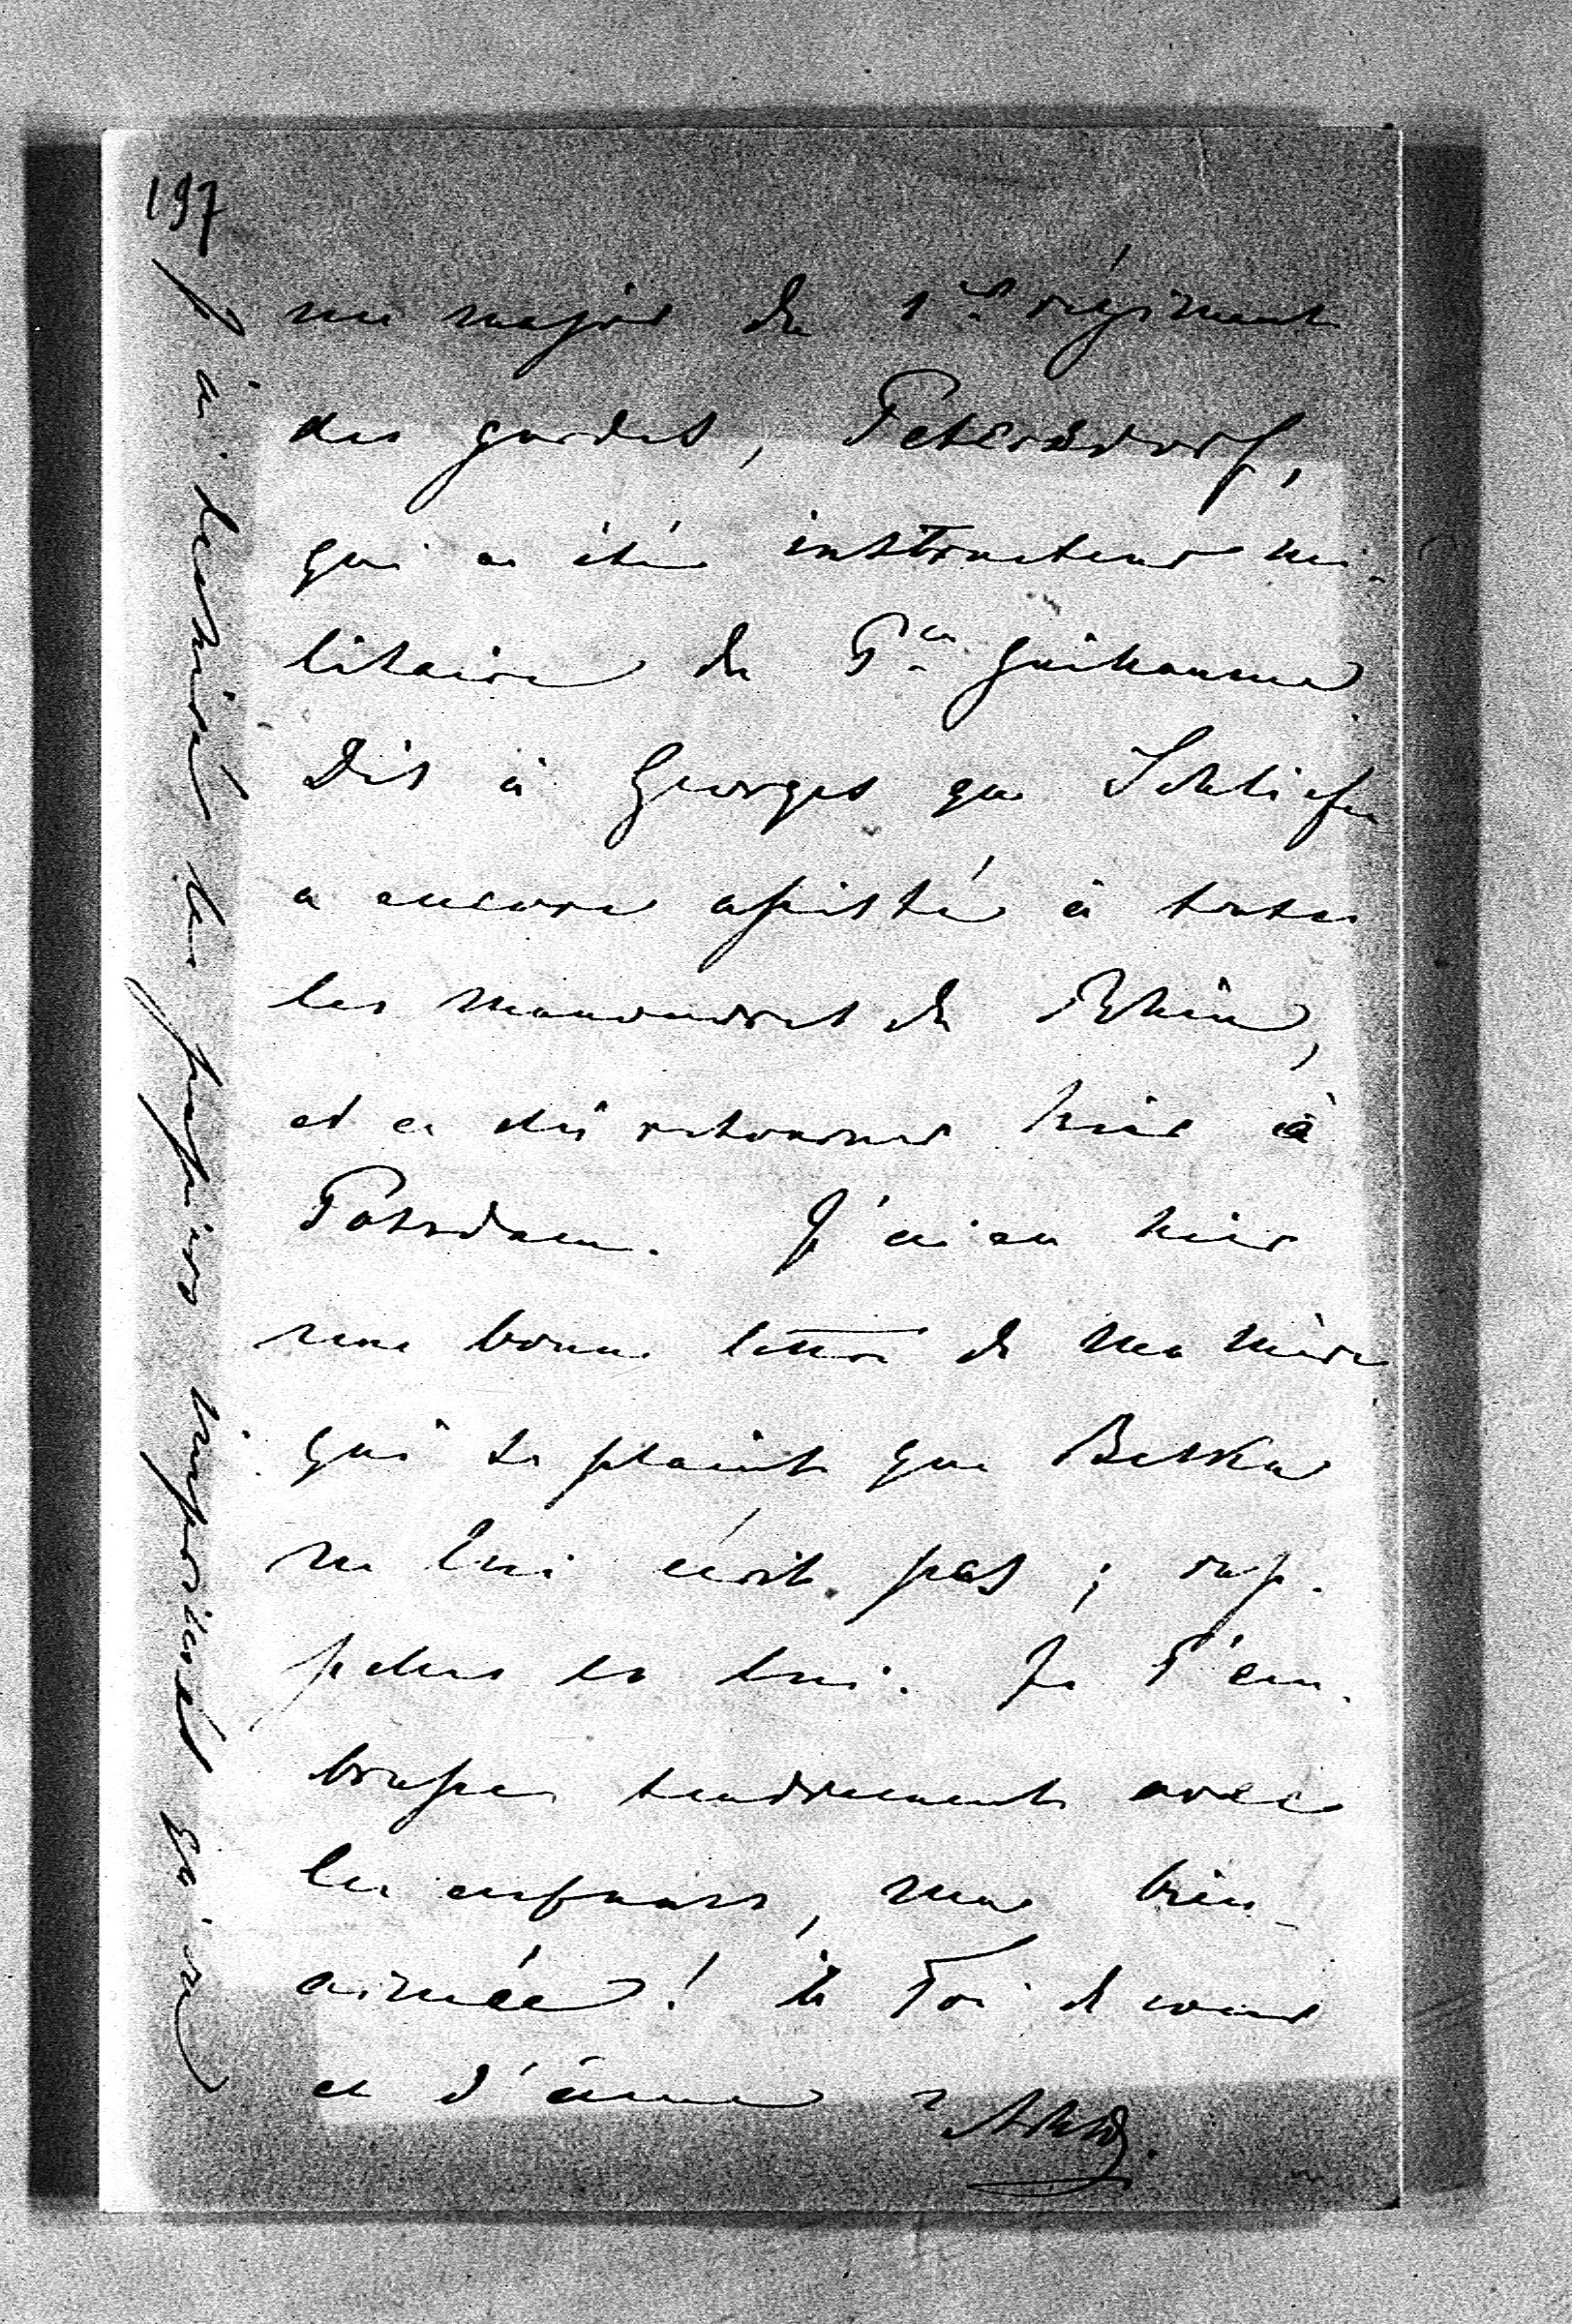 197
un major du 1er régiment
des gardes, Petersdorf,
qui a été instructeur mi-
litaire de Pce Guillaume.
Dis à Georges que Schliefen
a encore assisté à toutes
les manoeuvres du Rhin,
et a dû retourner hier à
Potsdam. J'ai eu hier
une bonne lettre de ma mère
qui se plaint que Betka
ne lui écrit pas ; rap-
pelles le lui. Je T'em-
brasse tendrement avec
les enfants, ma bien-
aimée! à Toi de coeur
et d'âme
J'ai les papiers